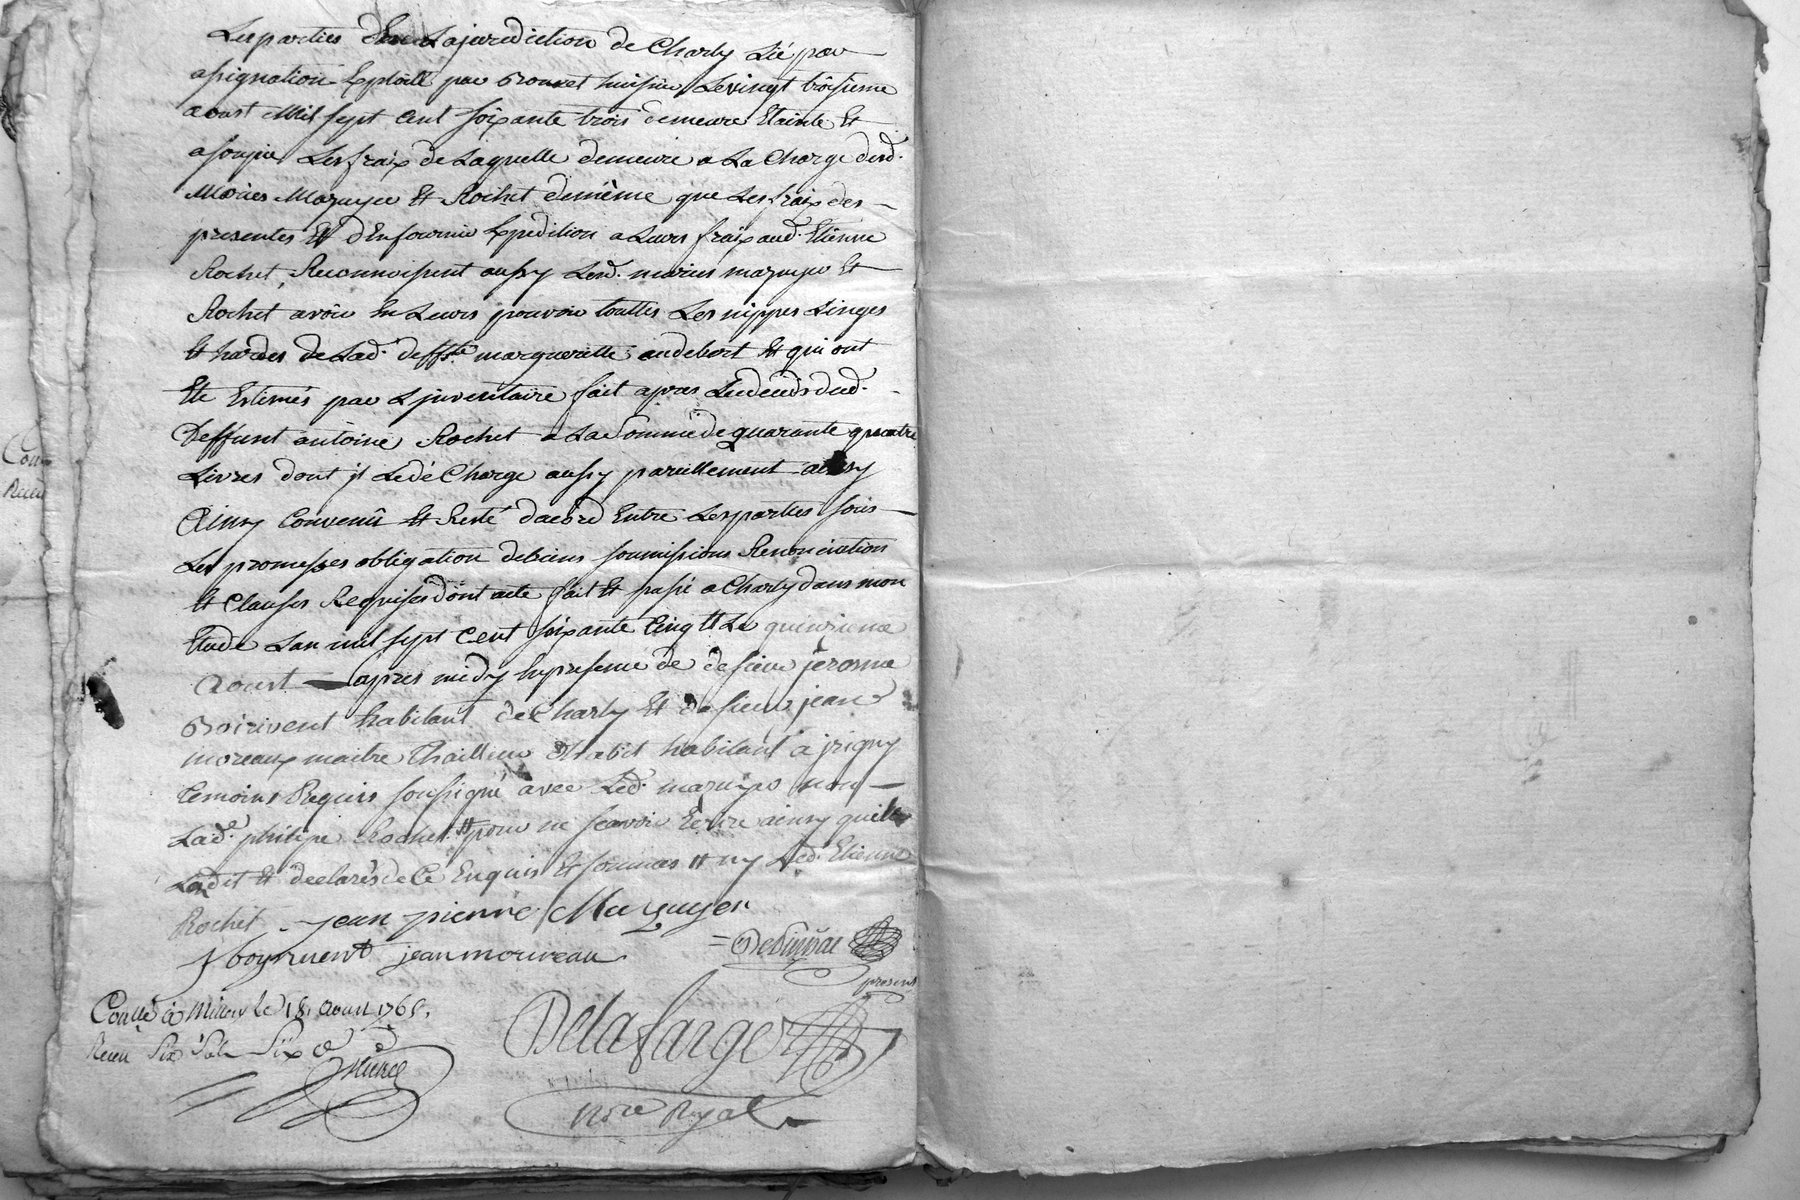 Les parties En La jurediction de Charly Lié par
assignation Exploitté par Brouxet huissier Le vingt troisieme
aoust Mil sept Cent soixante trois demeure Etainte Et
assoupie Les fraix de Laquelle demeure a La Charge desd.
Mariés Mazuyer Et Rochet demême que Les fraix des
presentes Et d'En fournir Expedition a Leurs fraix aud. Etienne
Rochet, Reconnoissent aussy Lesd. mariés mazuyer Et
Rochet avoir En Leurs pouvoir touttes Les nippes Linges
Et hardes de Lad. deffte. margueritte audebort Et qui ont
Eté Estimés par L'jnventaire fait apres Le deceds dud.
Deffunt antoine Rochet a La Somme de quarante quatre
Livres dont jl Le dé Charge aussy pareillement
Ainsy Convenu Et Resté dacord Entre Les parties sous
Les promesses obligation de biens soumissions Renonciation
Et Clauses Requises dont acte fait Et passé a Charly dans mon
Etude L'an mil sept Cent soixante Cinq Et Le quinzieme
Aoust apres midy En presence de de sieur jerosme
Boirivent habitant de Charly Et de sieur jean
moreaux maitre Thailleur D'habit habitant a jrigny
temoins Requis soussigné avec Led. mazuyer non
Lade. philipe Rochet pour ne sçavoir Ecrire ainsy quelle
La dit Et declarés de Ce Enquis Et sommés ny Led. Etienne
Rochet jean pierre Mazuyer
boyrivent jean moureau
present
Conllé à Millery le 18. Aoust 1765.
Receu Six Sols Six d
Delafarge
Nore Royal